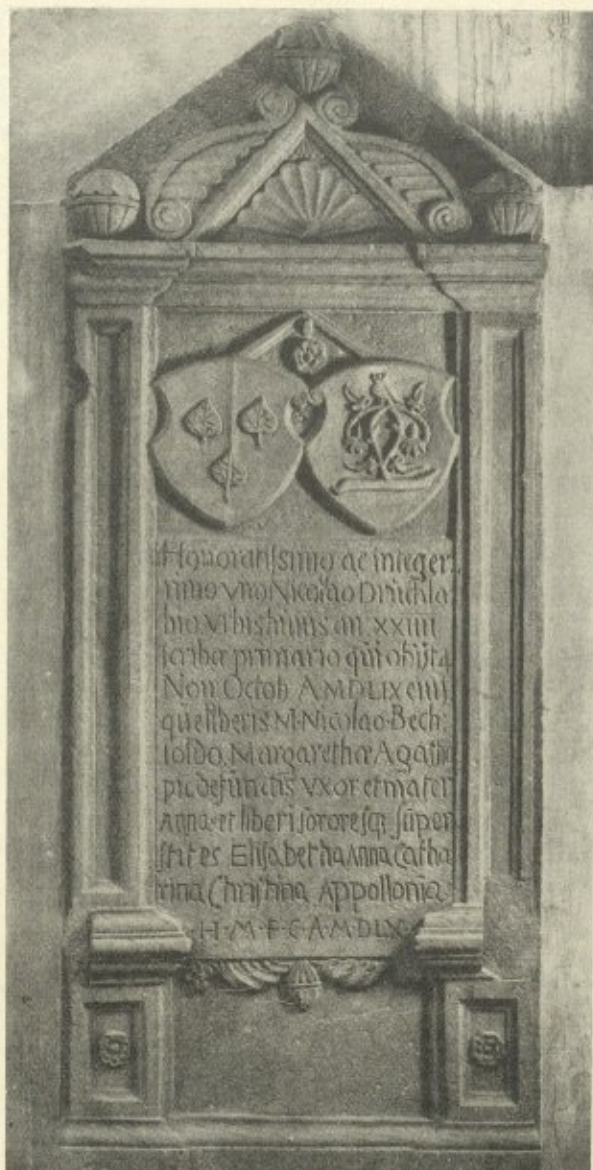 Honoratissimo ac integer
rimo viro Nicolao Druchla
bio Vrbis huius an XXIIII
scribæ primario qui obijt 4
Non Octob A MDLIX eius
que liberis M· Nicolao· Bech
toldo Margarethæ Agatha
pie defunctis vxor et mater
Anna· et liberi sororesq; super
stites Elisabetha Anna Catha
rina Christina Appollonia
H·M·F·C·A·MDLX